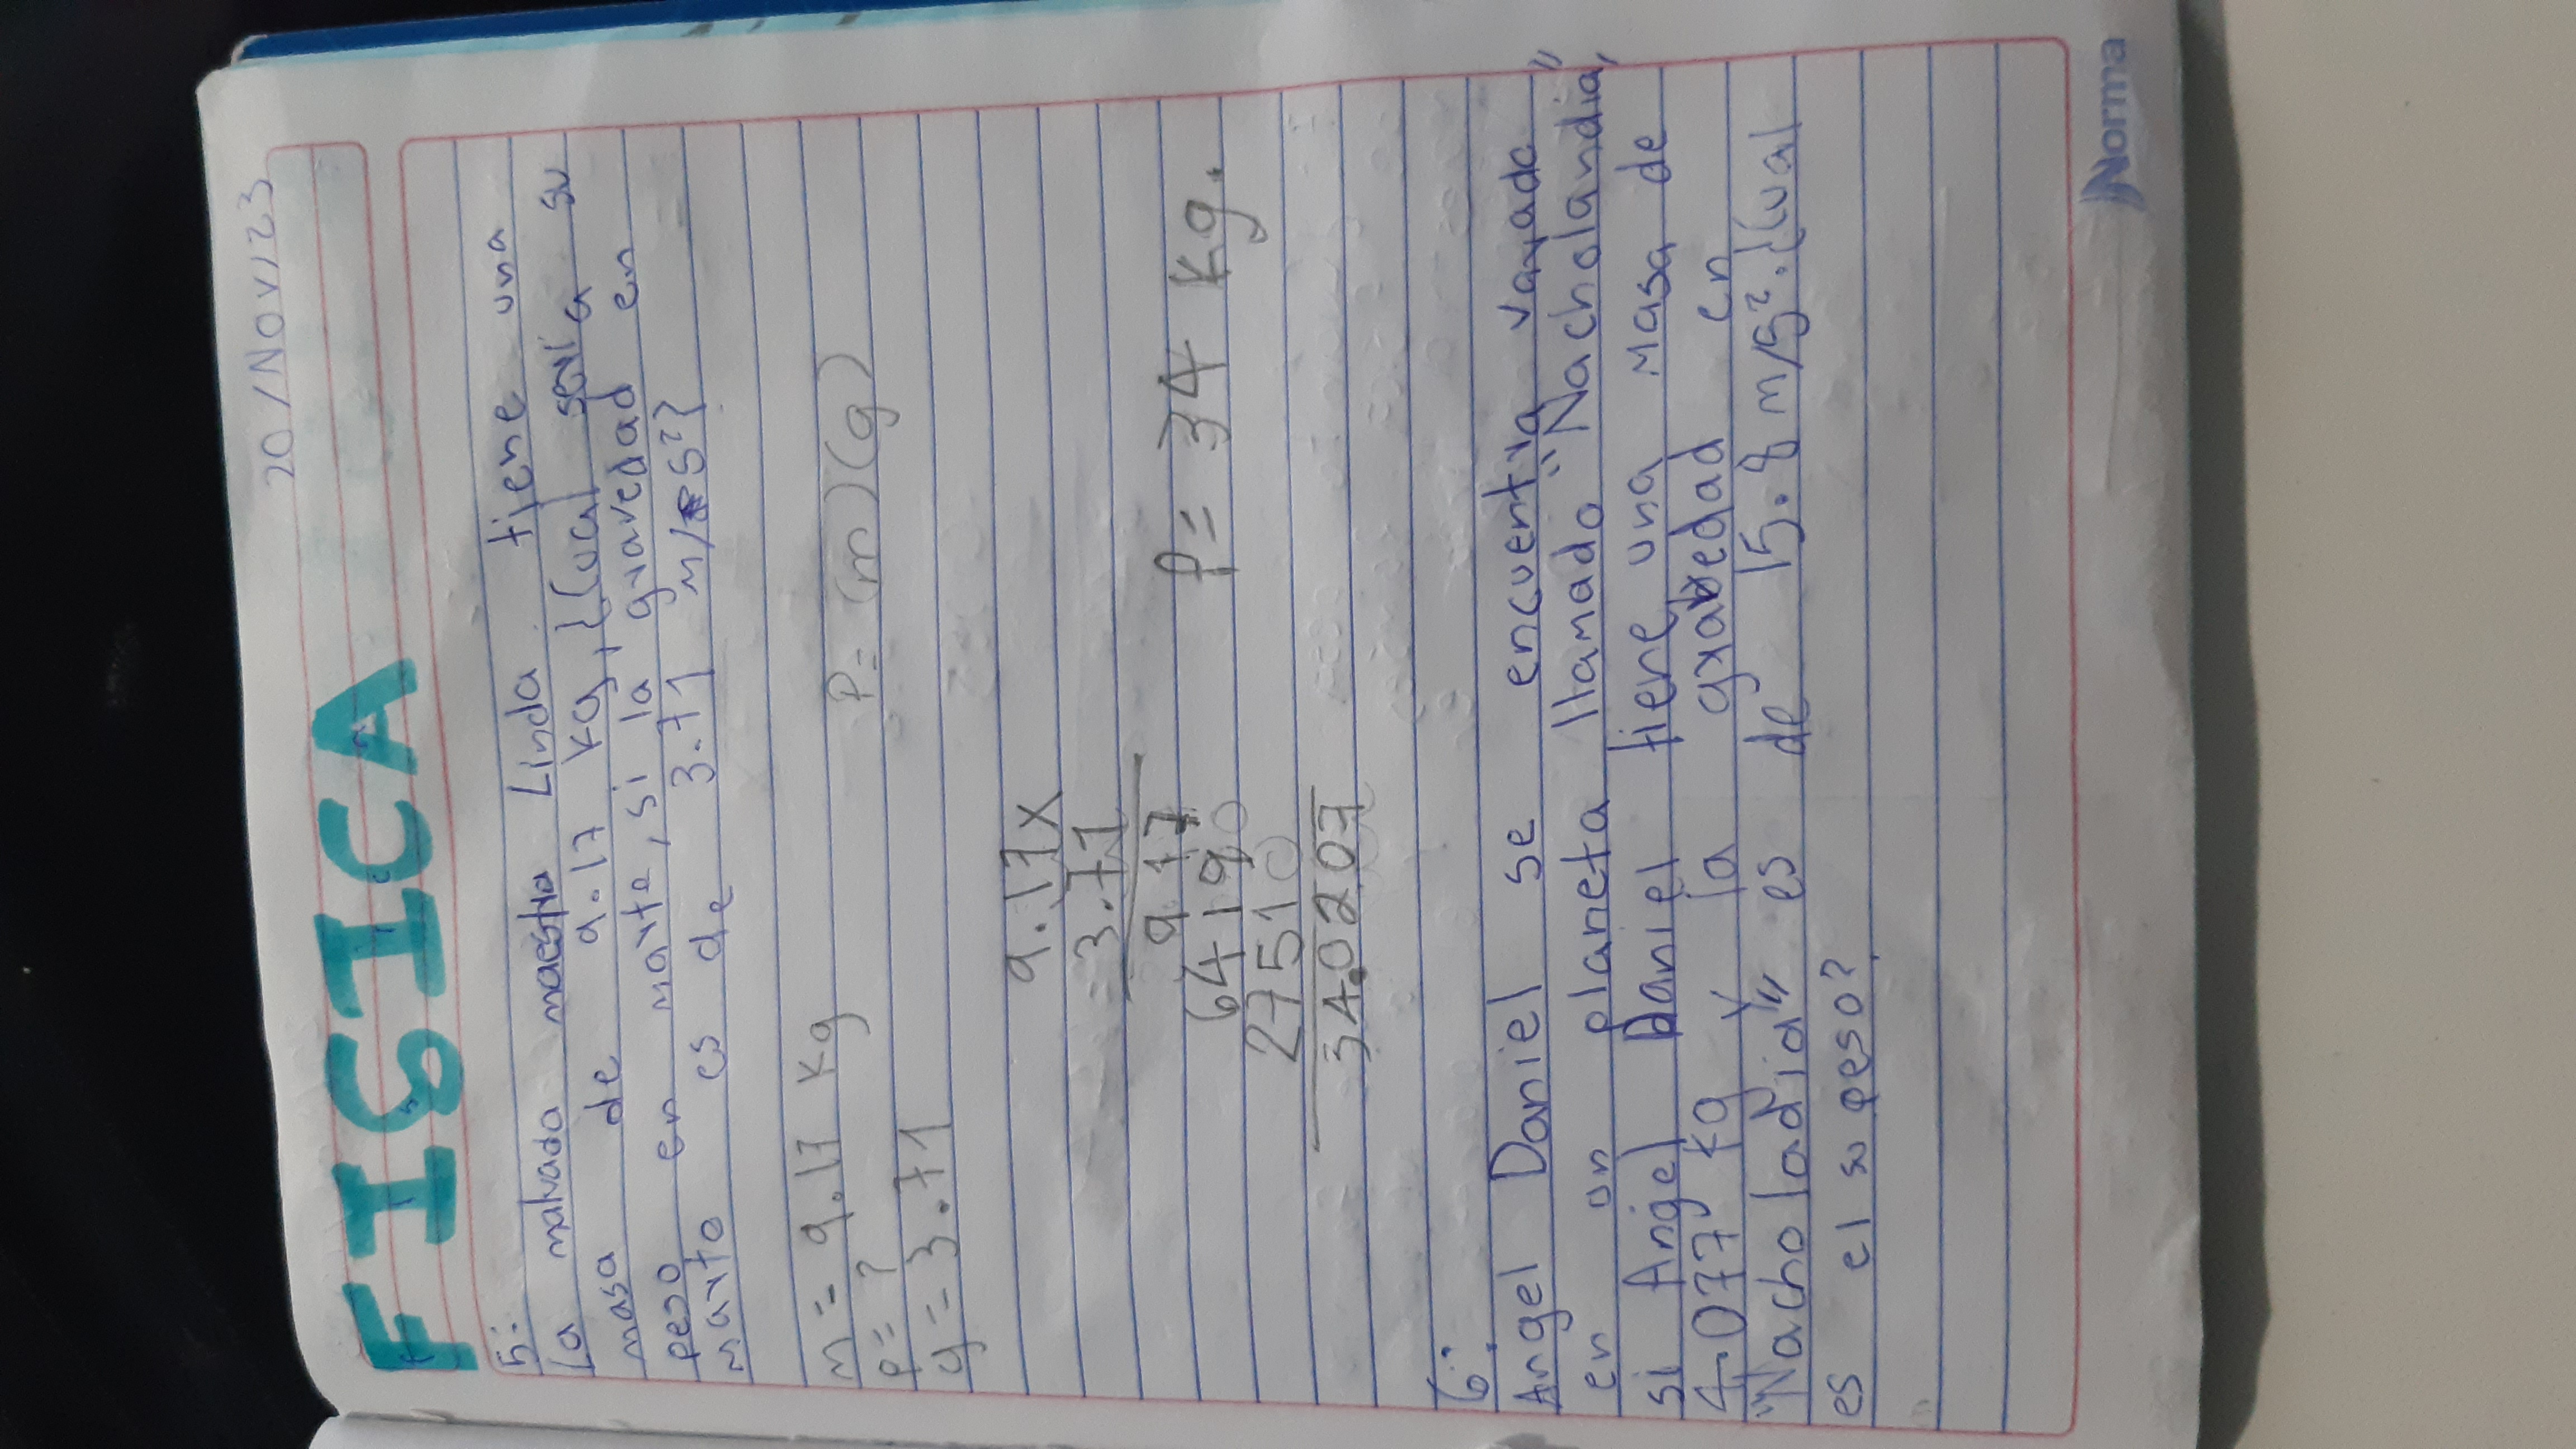 20/Nov/23
FISICA
5:
La malvada maestra Linda tiene una
masa de 9.17 Kg, ¿Cual sería su
peso en marte, si la gravedad en
marte es de 3.71 m/s²?
m= 9.17 Kg
P= ?
P= (m)(g)
g= 3.71
9.17x
3.71
917
64190
27510
34.0207
P= 34 Kg.
6:
Angel Daniel se encuentra varado
en un planeta llamado "Nacholandia"
si Angel Daniel tiene una masa de
4.077 Kg y la gravedad en
"Nacholadia" es de 15.8 m/s². ¿Cual
es el su peso?
Norma